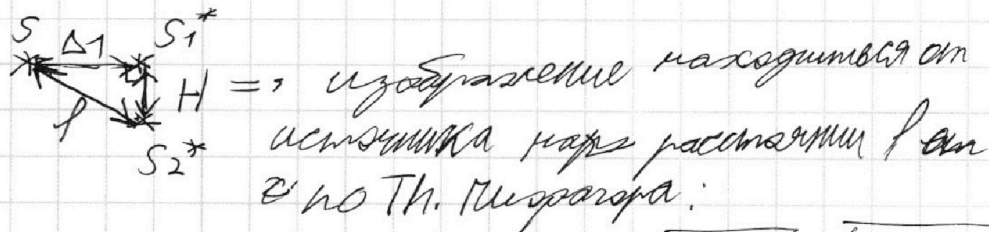 S Δ1 S1*
l H => изображение находиться от
S2* источника на расстоянии l от
по Th. Пифагора: